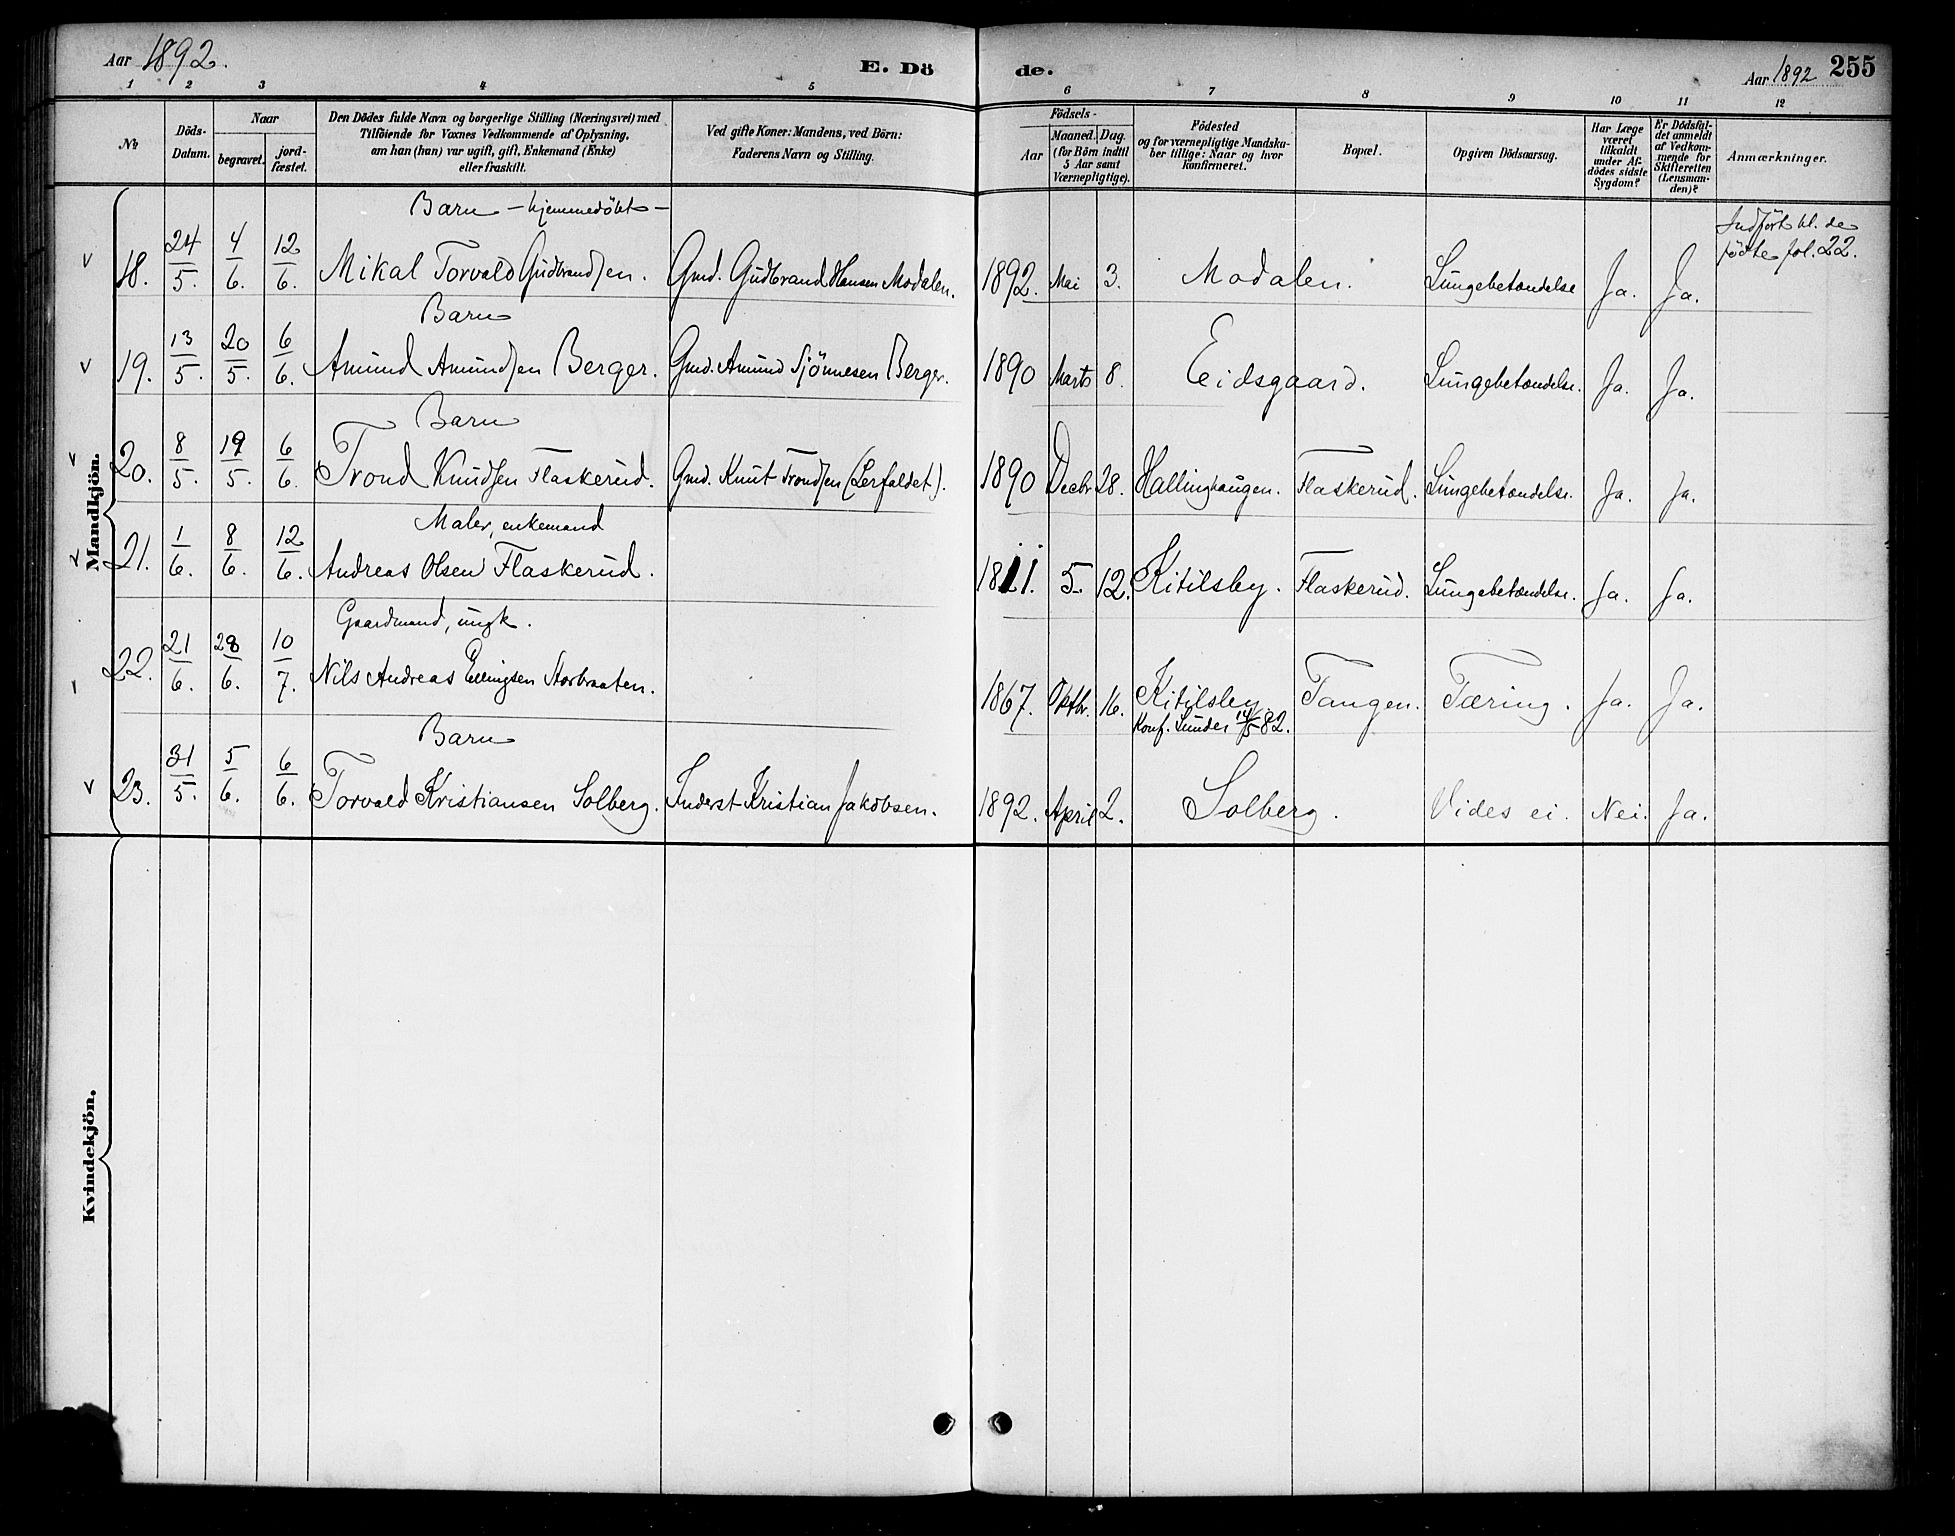 Aar 1892.
E. Dö
de.
Aar 1892
255
1 2 3 4 5
6 7 8 9 10 11 12
No
Döds-Datum.
Naar
begravet.
jord-fæstet.
Den Dödes fulde Navn og borgerlige Stilling (Næringsvei) med
Tilföiende for Voxnes Vedkommende af Oplysning,
om han (hun) var ugift, gift, Enkemand (Enke)
eller fraskilt.
Ved gifte Koner: Mandens, ved Börn:
Faderens Navn og Stilling.
Födsels-
Aar
Maaned. Dag.
(for Börn indtil
5 Aar samt
Værnepligtige).
Födested
og for værnepligtige Mandska-
ber tillige: Naar og hvor
konfirmeret.
Bopæl.
Opgiven Dödsaarsag.
Har Læge
været
tilkaldt
under Af-
dödes sidste
Sygdom?
Er Dödsfal-
det anmeldt
af Vedkom-
mende for
Skifteretten
(Lensman-
den)?
Anmærkninger.
Mandkjön.
Barn - hjemmedöbt -
18. 24/5. 4/6. 12/6. Mikal Torvald Gudbrandsen. Gmd. Gudbrand Hansen Modalen. 1892. Mai 3. Modalen. Lungebetændelse Ja. Ja. Indfört bl. de
födte fol. 22.
Barn
19. 13/5. 20/5. 6/6. Amund Amundsen Berger. Gmd. Amund Sjönnesen Berger. 1890 Marts 8. Eidsgaard. Lungebetændelse. Ja. Ja.
Barn
20. 8/5. 19/5. 6/6. Trond Knudsen Flaskerud. Gmd. Knut Trondsen (Lerfaldet). 1890 Decbr 28. Hallinghaugen. Flaskerud. Lungebetændelse. Ja. Ja.
Maler, enkemand
21. 1/6. 8/6. 12/6. Andreas Olsen Flaskerud. 1811. 5. 12. Kitilsby. Flaskerud. Lungebetændelse. Ja. Ja.
Gaardmand, ungk.
22. 21/6. 28/6. 10/7. Nils Andreas Ellingsen Storbraaten. 1867. Oktbr. 16. Kitilsby. Tangen. Tæring. Ja. Ja.
Konf. Lunder 14/5 82.
Barn
23. 31/5. 5/6. 6/6. Torvald Kristiansen Solberg. Inderst Kristian Jakobsen. 1892. April 2. Solberg. Vides ei. Nei. Ja.
Kvindekjön.